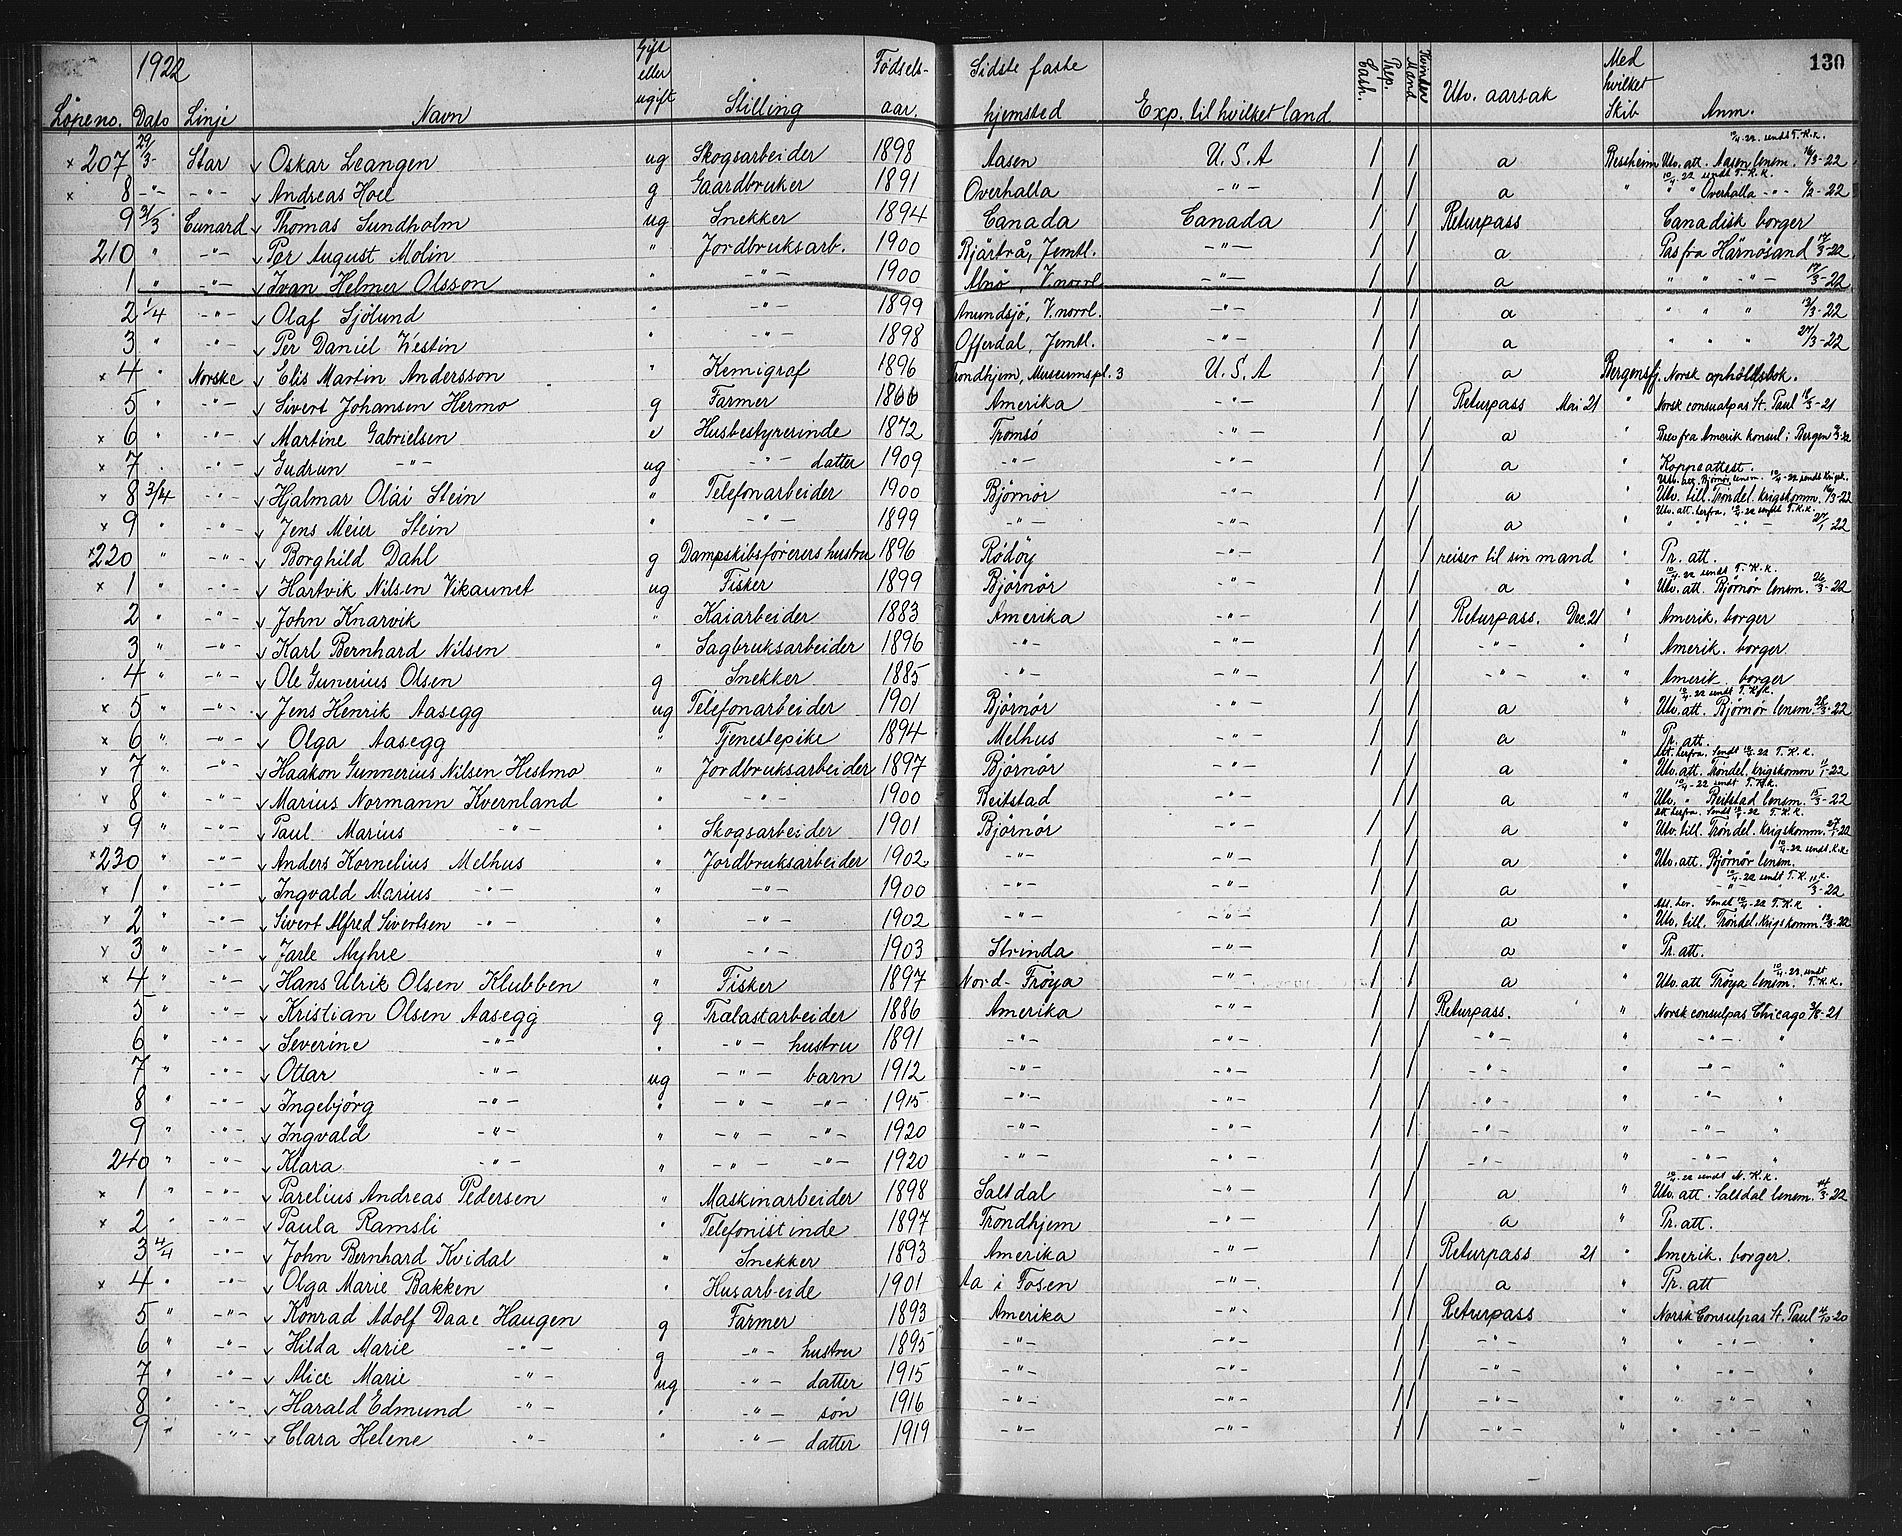 130
1922
Löpeno. Dato Linje Navn Gift eller ugift Stilling Fødsels-aar. Sidste faste hjemsted Exp. til hvilket land Cash. Prep. Mand Kvinder Utv. aarsak Med hvilket Skib Anm.
10/4-22 sendt T.K.K.
× 207 29/3- Star Oskar Leangen ug Skogsarbeider 1898 Aasen U.S.A / / a Utv. att. Aasen lensm. 16/3-22
10/4-22 sendt T.K.K.
× 8 -"- -"- Andreas Hoel g Gaardbruker 1891 Overhalla -"- / / a " " " Overhalla -"- 6/2-22
9 31/3 Cunard Thomas Sundholm ug Snekker 1894 Canada Canada / / Returpass Canadisk borger
210 " -"- Per August Molin " Jordbruksarb. 1900 Bjärtrå, Jemtl. -"- / / a Pas fra Härnösand 17/3-22
1 " -"- Ivan Helmer Olsson " -"- 1900 Alnö, V.norrl. -"- / / a " " -"- 17/3-22
2 1/4 -"- Olaf Sjölund " -"- 1899 Anundsjö, V.norrl. -"- / / a " " " 3/3-22
3 " -"- Per Daniel Westin " -"- 1898 Offerdal, Jemtl. -"- / / a " " " 27/3-22
× 4 " Norske Elis Martin Andersson " Kemigraf 1896 Trondhjem, Museumspl. 3 U.S.A / / a Bergensfj. Norsk opholdsbok.
5 " -"- Sivert Johansen Hermo g Farmer 1866 Amerika -"- / / Returpass Mai 21 " Norsk consulpas St. Paul 18/3-21
× 6 " -"- Martine Gabrielsen e Husbestyrerinde 1872 Tromsö -"- / / a " Brev fra Amerik konsul i Bergen
× 7 " -"- Gudrun -"- ug -"- datter 1909 -"- -"- / / a " Koppeattest.
× 8 3/4 -"- Hjalmar Olai Stein " Telefonarbeider 1900 Björnör -"- / / a " Utv. till. Tröndel. krigskomm. 16/3-22
Utv. att. herfra, 10/4-22 sendt T.K.K.
× 9 " -"- Jens Meier Stein " -"- 1899 -"- -"- / / a " " " -"- 27/1-22
×220 " -"- Borghild Dahl g Dampskibsförerers hustru 1896 Rödöy -"- / / reiser til sin mand " Pr. att.
10/4-22 sendt T.K.K.
× 1 " -"- Hartvik Nilsen Vikaunet ug Fisker 1899 Björnör -"- / / a " Utv. att. Björnör lensm. 26/3-22
2 " -"- John Knarvik " Kaiarbeider 1883 Amerika -"- / / Returpass. Dec. 21 " Amerik. borger
3 " -"- Karl Bernhard Nilsen " Sagbruksarbeider 1896 -"- -"- / / -"- " " Amerik. borger
4 " -"- Ole Gunerius Olsen g Snekker 1885 -"- -"- / / -"- " " Amerik. borger
10/4-22 sendt T.K.K.
× 5 " -"- Jens Henrik Aasegg ug Telefonarbeider 1901 Björnör -"- / / a " Utv. att. Björnör lensm. 28/3-22
× 6 " -"- Olga Aasegg " Tjenestepike 1894 Melhus -"- / / a " Pr. att.
Att. herfra. Sendt 10/4-22 T.K.K.
× 7 " -"- Haakon Gunnerius Nilsen Hestmo " Jordbruksarbeider 1897 Björnör -"- / / a " Utv. att. Tröndel. krigskomm 11/1-22
10/4-22 sendt T.K.K.
× 8 " -"- Marius Normann Kvernland " -"- 1900 Beitstad -"- / / a " Utv. " Beitstad lensm. 15/3-22
Att herfra. Sendt 10/4-22 T.K.K.
× 9 " -"- Paul Marius -"- " Skogsarbeider 1901 Björnör -"- / / a " Utv. till. Tröndel. krigskomm. 27/1-22
10/4-22 sendt. K.K.
×230 " -"- Anders Kornelius Melhus " Jordbruksarbeider 1902 -"- -"- / / a " Utv. att. Björnör lensm.
10/4-22 sendt T.K.K.
× 1 " -"- Ingvald Marius -"- " -"- 1900 -"- -"- / / a " -"- " 11/3-22
Att. her. Sendt 10/4-22 T.K.K.
× 2 " -"- Sivert Alfred Sivertsen -"- " -"- 1902 -"- -"- / / a " Utv. till. Tröndel. krigskomm. 13/3-22
× 3 " -"- Jarle Myhre " -"- 1903 Strinda -"- / / a " Pr. att.
10/4-22 sendt T.K.K.
× 4 " -"- Hans Ulrik Olsen Klubben " Fisker 1897 Nord-Fröya -"- / / a " Utv. att Fröya lensm.
5 " -"- Kristian Olsen Aasegg g Trælastarbeider 1886 Amerika -"- / / Returpass. " Norsk consulpas Chicago 3/8-21
6 " -"- Severine -"- " -"- hustru 1891 -"- -"- / / -"- " -"- "
7 " -"- Ottar -"- ug -"- barn 1912 -"- -"- / / -"- " -"- "
8 " -"- Ingebjörg -"- " -"- -"- 1915 -"- -"- / / -"- " -"- "
9 " -"- Ingvald -"- " -"- -"- 1920 -"- -"- / / -"- " -"- "
240 " -"- Klara -"- " -"- -"- 1920 -"- -"- / / -"- " -"- "
10/4-22 sendt N.K.K.
× 1 " -"- Parelius Andreas Pedersen " Maskinarbeider 1898 Saltdal -"- / / a " Utv. att. Saltdal lensm. 14/3-22
× 2 " -"- Paula Ramsli " Telefonistinde 1897 Trondhjem -"- / / a " Pr. att.
3 4/4 -"- John Bernhard Kvidal " Snekker 1893 Amerika -"- / / Returpass 21 " Amerik. borger.
× 4 " -"- Olga Marie Bakken " Husarbeide 1901 Aa i Fosen -"- / / a " Pr. att
5 " -"- Konrad Adolf Daae Haugen g Farmer 1893 Amerika -"- / / Returpass " Norsk Consulpas St. Paul 4/10-20
6 " -"- Hilda Marie -"- g -"- hustru 1895 -"- -"- / / -"- " " -"- "
7 " -"- Alice Marie -"- ug -"- datter 1915 -"- -"- / / -"- " " -"- "
8 " -"- Harald Edmund -"- " -"- sön 1916 -"- -"- / / -"- " " -"- "
9 " -"- Clara Helene -"- " -"- datter 1919 -"- -"- / / -"- " " -"- "